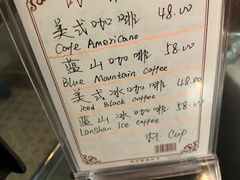 美式咖啡 48.00
Cafe Americano
蓝山咖啡 58.00
Blue Mountain Coffee
美式冰咖啡 48.00
iced Black coffee
蓝山冰咖啡 58.00
Lanshan Ice Coffee
Cup